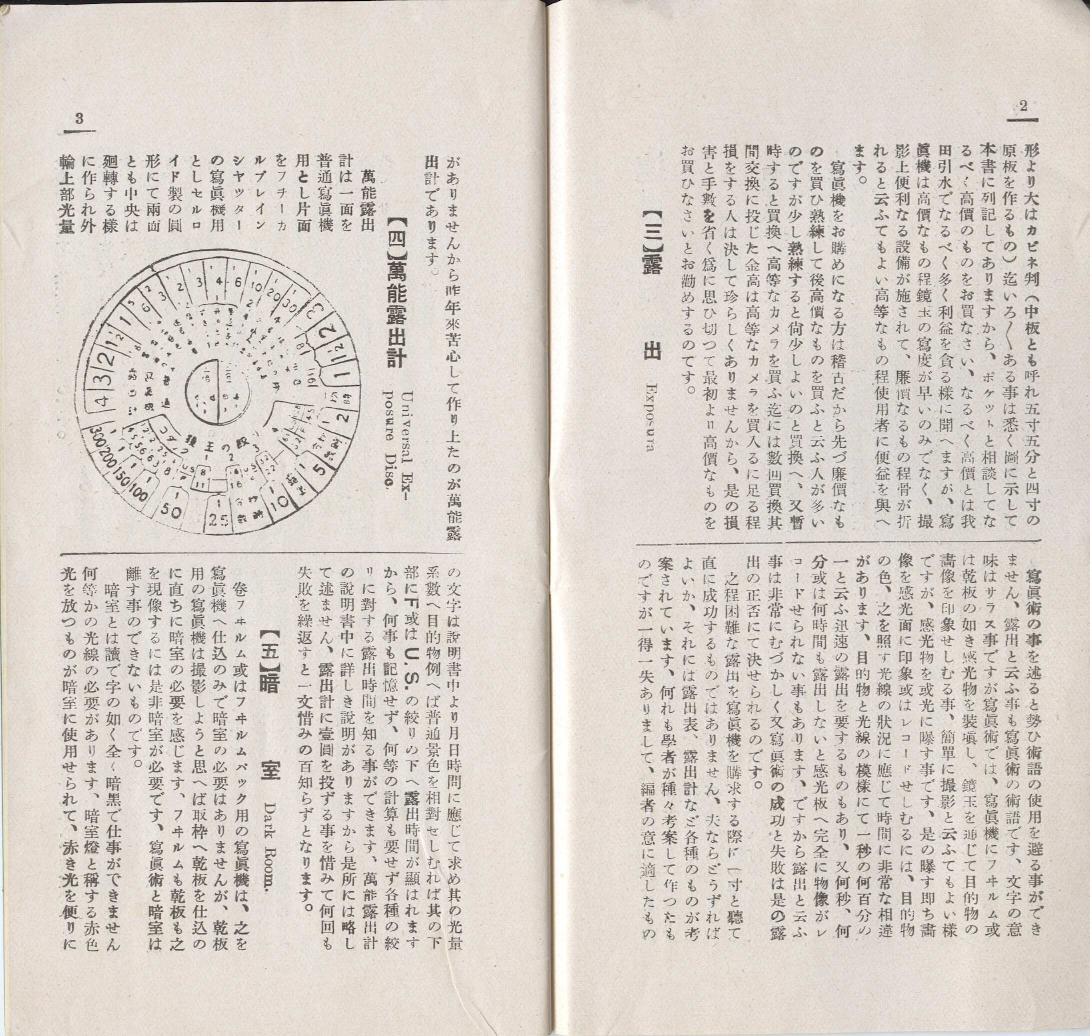 2
形より大はカビネ判(中板とも呼れ五寸五分と四寸の
原板を作るもの)迄いろ〱ある事は悉く圖に示して
本書に列記してありますから、ポケツトと相談してな
るべく高價のものをお買なさい、なるべく高價とは我
田引水でなるべく多く利益を貪る樣に聞へますが、寫
眞機は高價なもの程鏡玉の寫度が早いのみでなく、撮
影上便利なる設備が施されて、廉價なるもの程骨が折
れると云ふてもよい高等なもの程使用者に便益を與へ
ます。
寫眞機をお購めになる方は稽古だから先づ廉價なも
のを買ひ熟練して後高價なものを買ふと云ふ人が多い
のですが少し熟練すると尙少しよいのと買換へ、又暫
時すると買換へ高等なカメラを買ふ迄には數回買換其
間交換に投じた金高は高等なカメラを買入るに足る程
損をする人は決して珍らしくありませんから、是の損
害と手數を省く爲に思ひ切つて最初より高價なものを
お買ひなさいとお勸めするのてす。
【三】露出
Exposura
寫眞術の事を述ると勢ひ術語の使用を避る事ができ
ません、露出と云ふ事も寫眞術の術語です、文字の意
味はサラス事ですが寫眞術では、寫眞機にフヰルム或
は乾板の如き感光物を裝塡し、鏡玉を通じて目的物の
畵像を印象せしむる事、簡單に撮影と云ふてもよい樣
ですが、感光物を或光に曝す事です、是の曝す即ち畵
像を感光面に印象或はレコードせしむるには、目的物
の色、之を照す光線の狀況に應じて時間に非常な相違
があります、目的物と光線の模樣にて一秒の何百分の
一と云ふ迅速の露出を要するものもあり、又何秒、何
分或は何時間も露出しないと感光板へ完全に物像がレ
コードせられない事もあります、ですから露出と云ふ
事は非常にむづかしく又寫眞術の成功と失敗は是の露
出の正否にて決せられるのです。
之程困難な露出を寫眞機を購求する際に一寸と聽て
直に成功するものではありません、夫ならどうすれば
よいか、それには露出表、露出計など各種のものが考
案されています、何れも學者が種々考案して作つたも
のですが一得一失ありまして、編者の意に適したもの
3
がありませんから昨年來苦心して作り上たのが萬能露
出計であります。
【四】萬能露出計
Universal Ex-
posure Diso.
萬能露出
計は一面を
普通寫眞機
用とし片面
をフヲーカ
ルプレイン
シヤツター
の寫眞機用
としセルロ
イド製の圓
形にて兩面
とも中央は
廻轉する樣
に作られ外
輪上部光量
の文字は說明書中より月日時間に應じて求め其の光量
系數へ目的物例へば普通景色を相對せしむれば其の下
部にF或はU.S.の絞りの下へ露出時間が顯はれます
から、何事も記憶せず、何等の計算も要せず各種の絞
リに對する露出時間を知る事ができます、萬能露出計
の說明書中に詳しき說明がありますから是所には略し
て述ません、露出計に壹圓を投ずる事を惜みて何回も
失敗を繰返すと一文惜みの百知らずとなります。
【五】暗室
Dark Room.
卷フヰルム或はフヰルムパック用の寫眞機は、之を
寫眞機へ仕込のみで暗室の必要はありませんが、乾板
用の寫眞機は撮影しようと思へば取枠へ乾板を仕込の
に直ちに暗室の必要を感じます、フヰルムも乾板も之
を現像するには是非暗室が必要です、寫眞術と暗室は
離す事のできないものです。
暗室とは讀で字の如く全く暗黑で仕事ができません
何等かの光線の必要があります、暗室燈と稱する赤色
光を放つものが暗室に使用せられて、赤き光を便りに